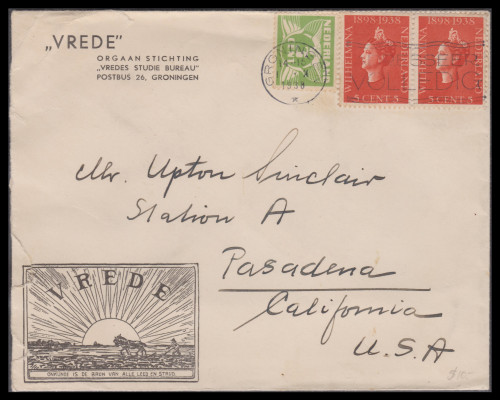 „VREDE”
ORGAAN STICHTING
„VREDES STUDIE BUREAU”
POSTBUS 26, GRONINGEN
NEDERLAND
1898-1938
WILHELMINA
5 CENT 5
1898-1938
WILHELMINA
5 CENT 5
GRONINGEN
X
1938
Mr. Upton Sinclair
Station A
Pasadena
California
U.S.A
VREDE
ONKUNDE IS DE BRON VAN ALLE LEED EN STRIJD